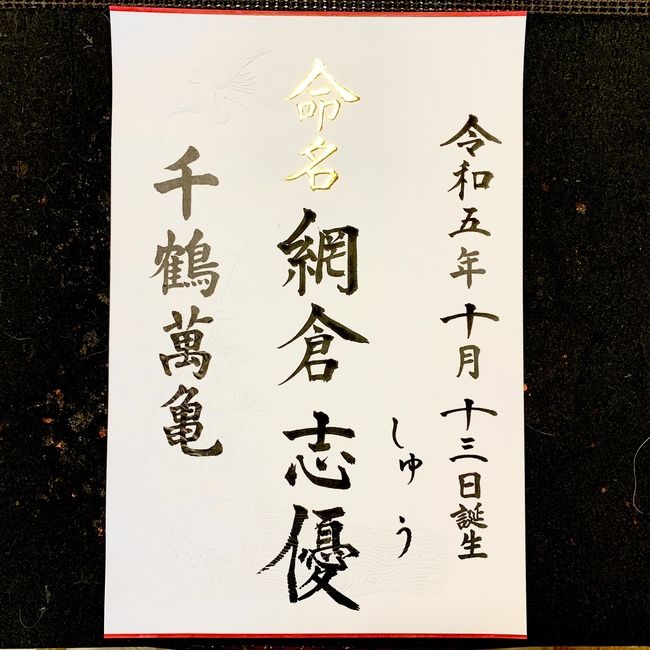 令和五年十月十三日誕生
しゅう
命名 網倉志優
千鶴萬亀